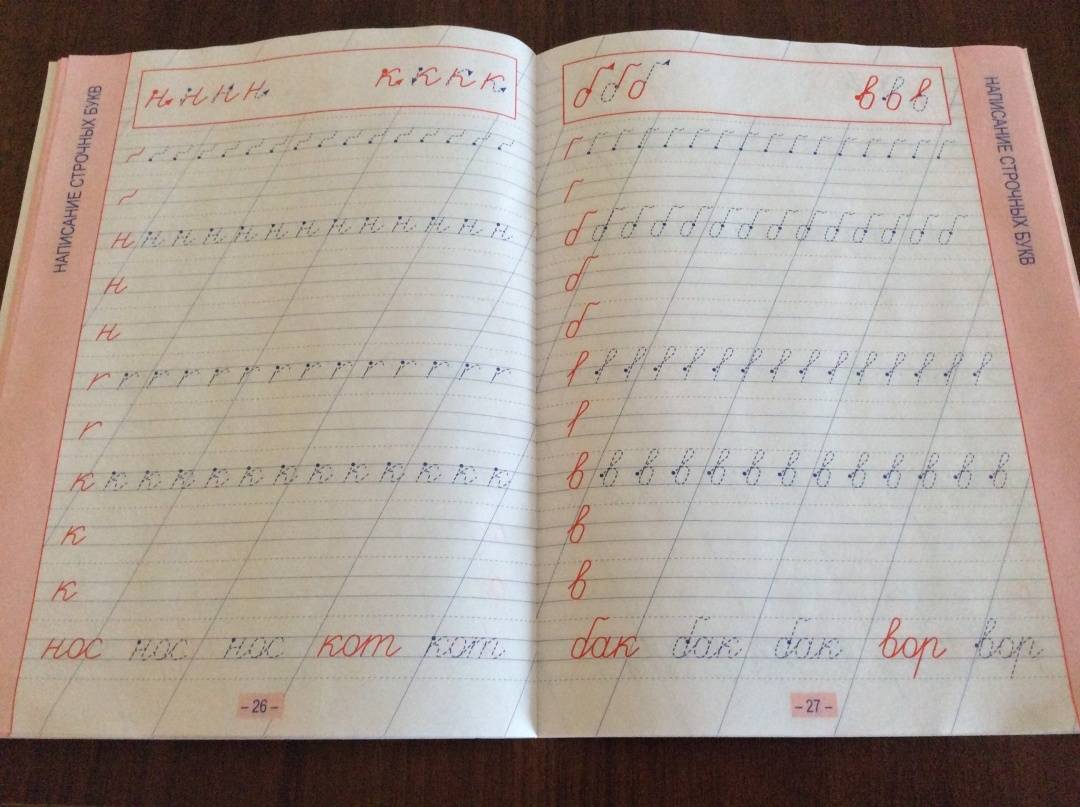 НАПИСАНИЕ СТРОЧНЫХ БУКВ
н н н н к к к к
н н н н н н н н н н н н н
н
н
к к к к к к к к к к к к к
к
к
нос нос нос кот кот
– 26 –
б б б в в в
б б б б б б б б б б б б б б
б
б
в в в в в в в в в в в в в
в
в
бак бак бак вор вор
– 27 –
НАПИСАНИЕ СТРОЧНЫХ БУКВ